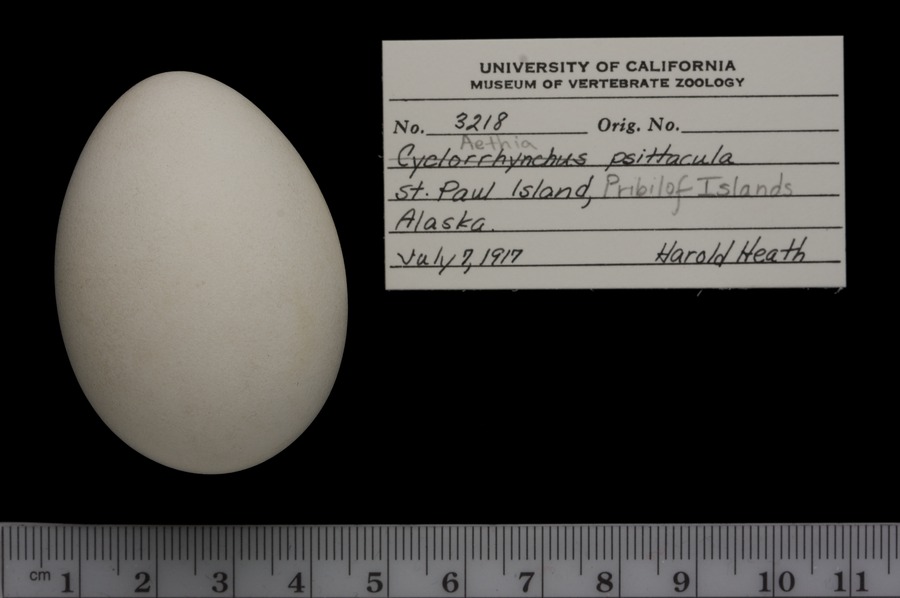 UNIVERSITY OF CALIFORNIA
MUSEUM OF VERTEBRATE ZOOLOGY
No. 3218 Orig. No.
Aethia
Cyclorrhynchus psittacula
St. Paul Island, Pribilof Islands
Alaska.
July 7, 1917 Harold Heath
cm 1 2 3 4 5 6 7 8 9 10 11